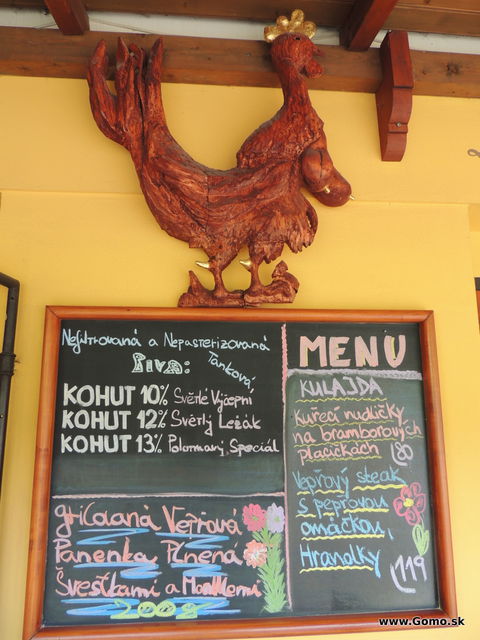 Nefiltrovaná a Nepasterizovaná
Tanková
Piva:
KOHUT 10% Světlé Výčepní
KOHUT 12% Světlý Ležák
KOHUT 13% Polotmavý Speciál
grilovaná Vepřová
Panenka Plněná
Švestkami a Mandlemi
200g
MENU
KULAJDA
Kuřecí nudličky
na bramborových
plackách
Vepřový steak
s pepřovou
omáčkou,
Hranolky
119
www.Gomo.sk